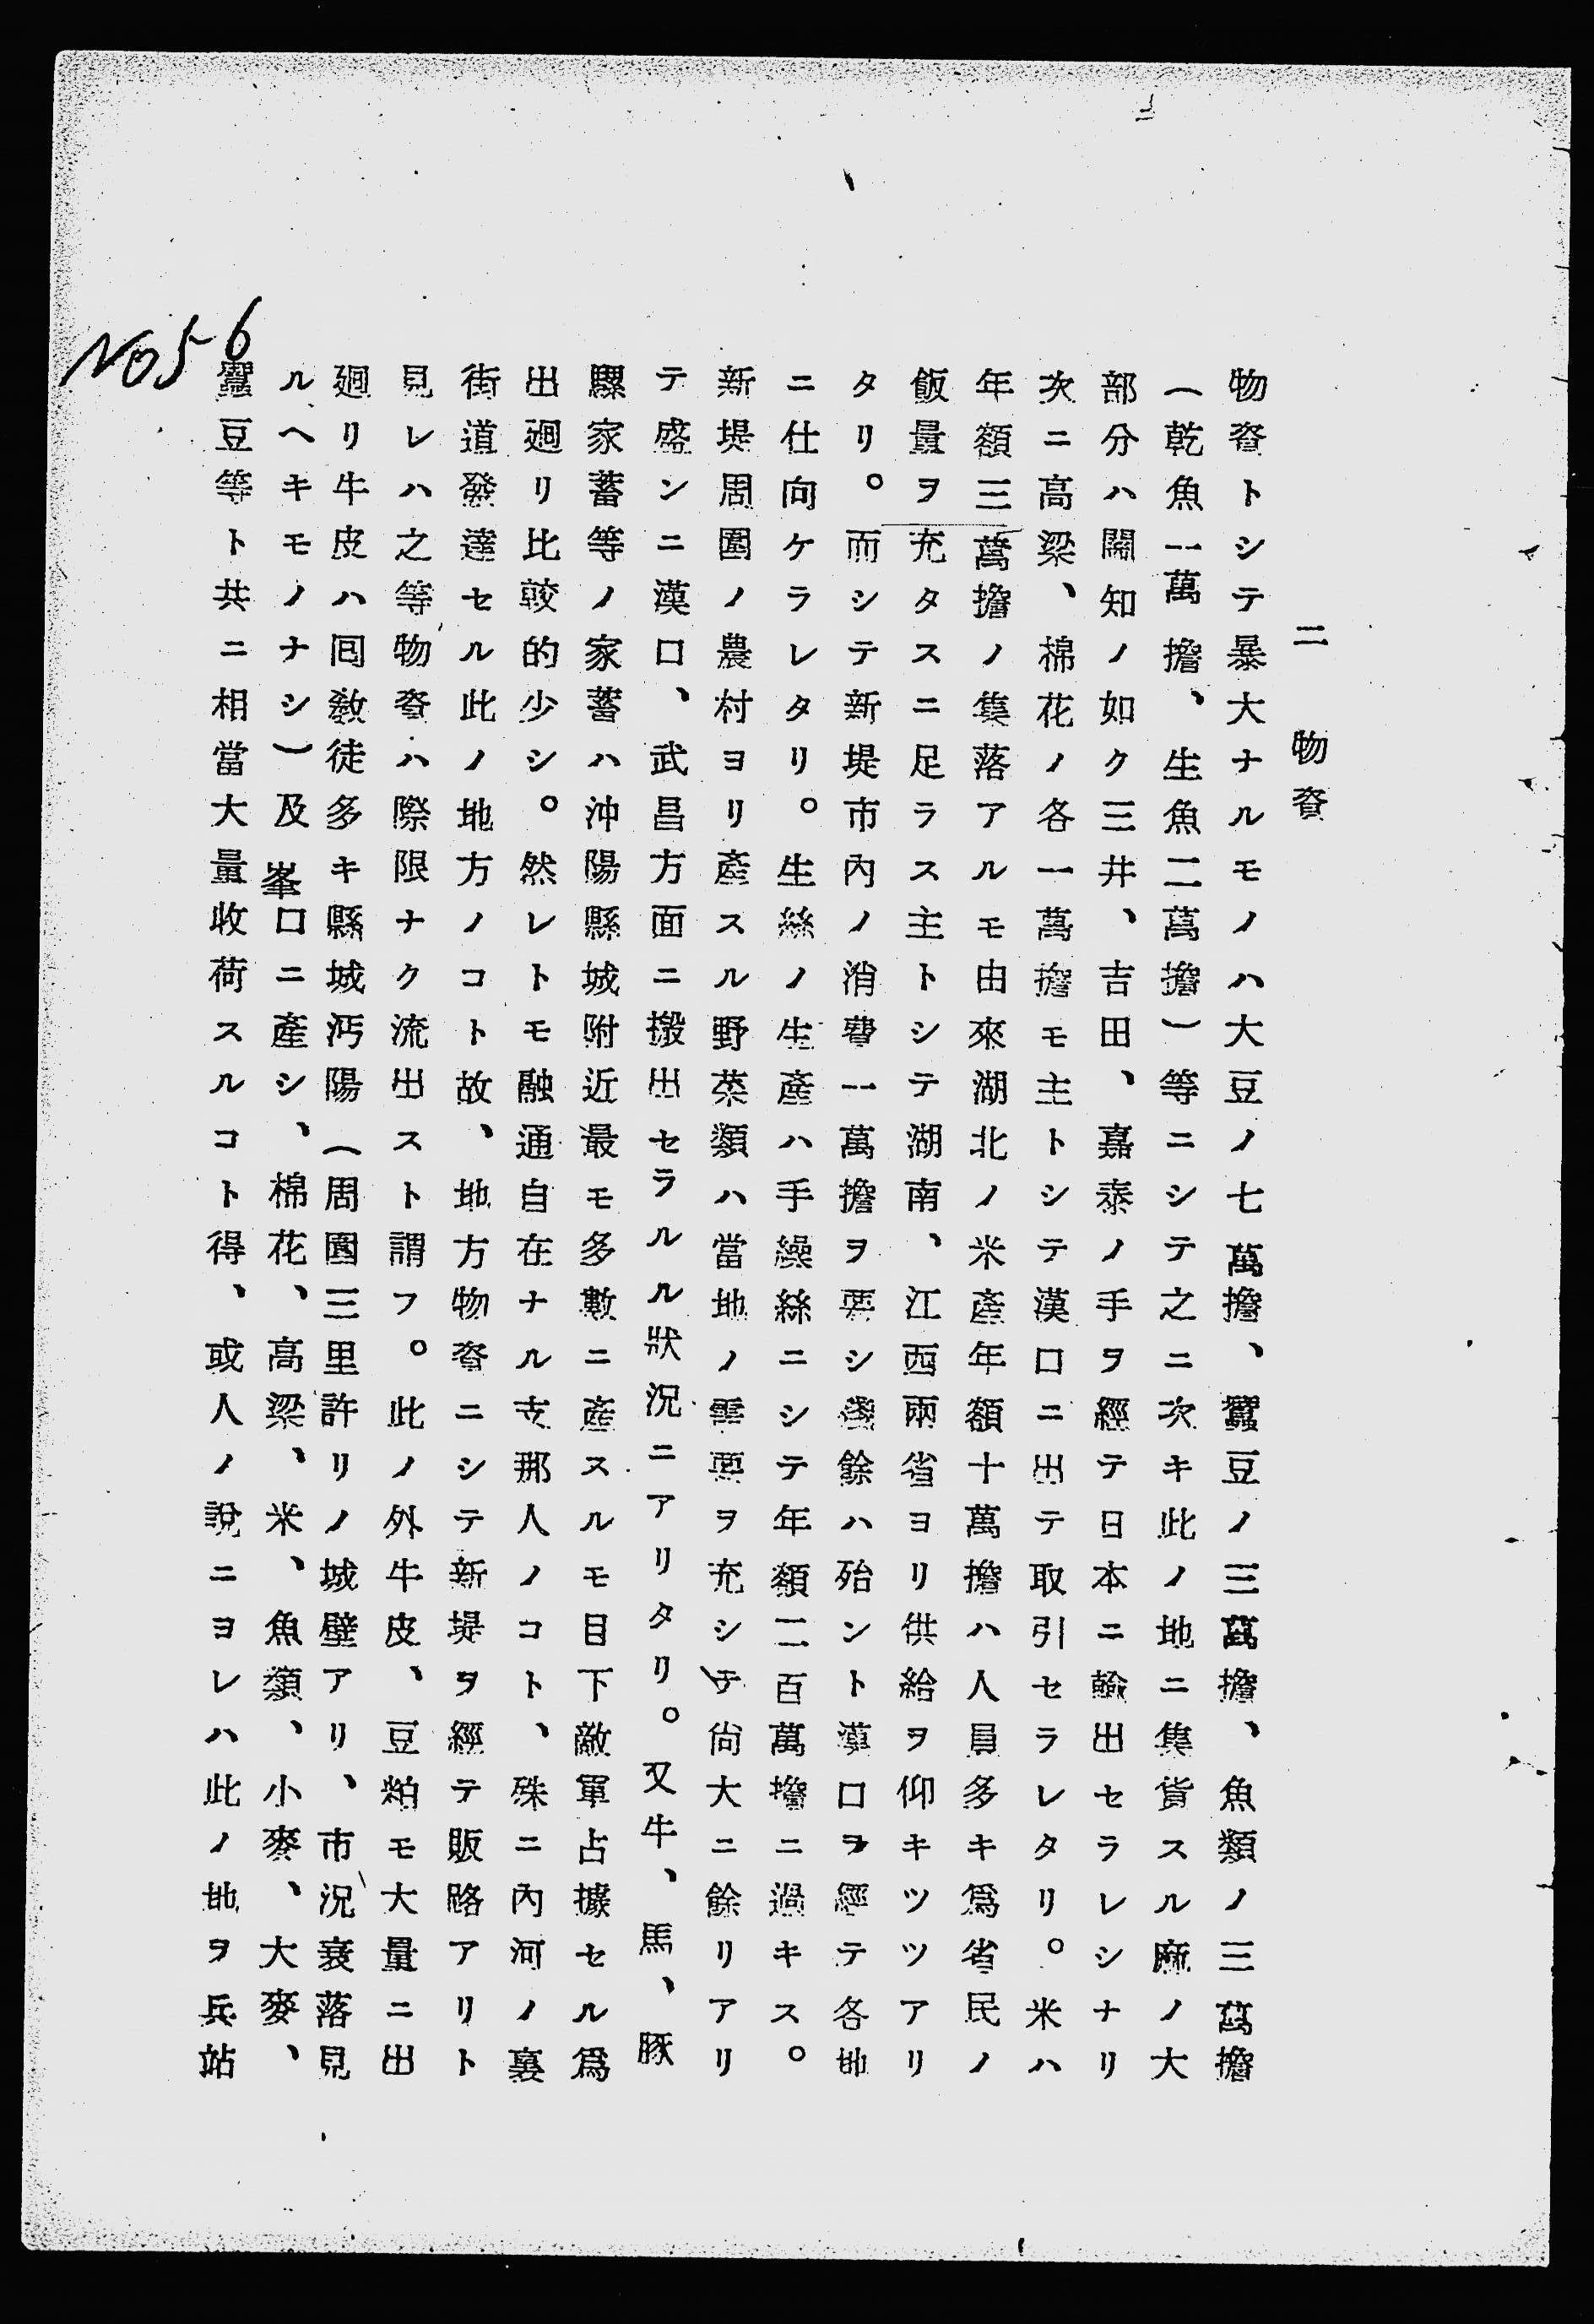 二　物資
物資トシテ暴大ナルモノハ大豆ノ七萬擔、蠶豆ノ三萬擔、魚類ノ三萬擔
（乾魚一萬擔、生魚二萬擔）等ニシテ之ニ次キ此ノ地ニ集貨スル麻ノ大
部分ハ關知ノ如ク三井、吉田、嘉泰ノ手ヲ經テ日本ニ輸出セラレシナリ
次ニ高梁、棉花ノ各一萬擔モ主トシテ漢口ニ出テ取引セラレタリ。米ハ
年額三萬擔ノ集落アルモ由來湖北ノ米產年額十萬擔ハ人員多キ爲省民ノ
飯量ヲ充タスニ足ラス主トシテ湖南、江西兩省ヨリ供給ヲ仰キツツアリ
タリ。而シテ新堤市內ノ消費一萬擔ヲ要シ殘餘ハ殆ント漢口ヲ經テ各地
ニ仕向ケラレタリ。生絲ノ生產ハ手繰絲ニシテ年額二百萬擔ニ過キス。
新堤周圍ノ農村ヨリ產スル野菜類ハ當地ノ需要ヲ充シテ尙大ニ餘リアリ
テ盛ンニ漢口、武昌方面ニ搬出セラルル狀況ニアリタリ。又牛、馬、豚
騾家蓄等ノ家蓄ハ沖陽縣城附近最モ多數ニ產スルモ目下敵軍占據セル爲
出廻リ比較的少シ。然レトモ融通自在ナル支那人ノコト、殊ニ內河ノ裏
街道發達セル此ノ地方ノコト故、地方物資ニシテ新堤ヲ經テ販路アリト
見レハ之等物資ハ際限ナク流出スト謂フ。此ノ外牛皮、豆粕モ大量ニ出
廻リ牛皮ハ囘敎徒多キ縣城沔陽（周圍三里許リノ城壁アリ、市況衰落見
ルヘキモノナシ）及峯口ニ產シ、棉花、高梁、米、魚類、小麥、大麥、
蠶豆等ト共ニ相當大量收荷スルコト得、或人ノ說ニヨレハ此ノ地ヲ兵站
NO56